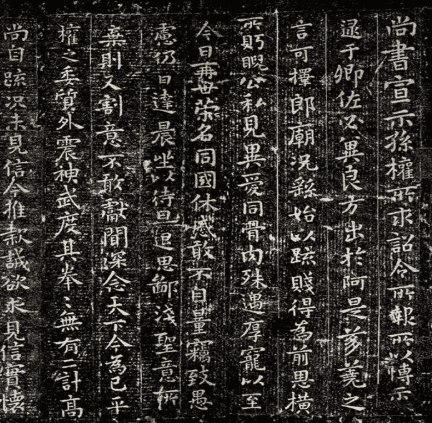 尚書宣示孫權所求詔令所報所以博示
逮于卿佐必異良方出於阿是芻蕘之
言可擇郎廟況繇始以疏賤得為前恩橫
所盻睨公私見異愛同骨肉殊遇厚寵以至
今日再世榮名同國休慼敢不自量竊致愚
慮仍日達晨坐以待旦退思鄙淺聖意所
棄則又割意不敢獻聞深念天下今為已平
權之委質外震神武度其拳〻無有二計高
尚自疏況未見信今推款誠欲求見信實懷